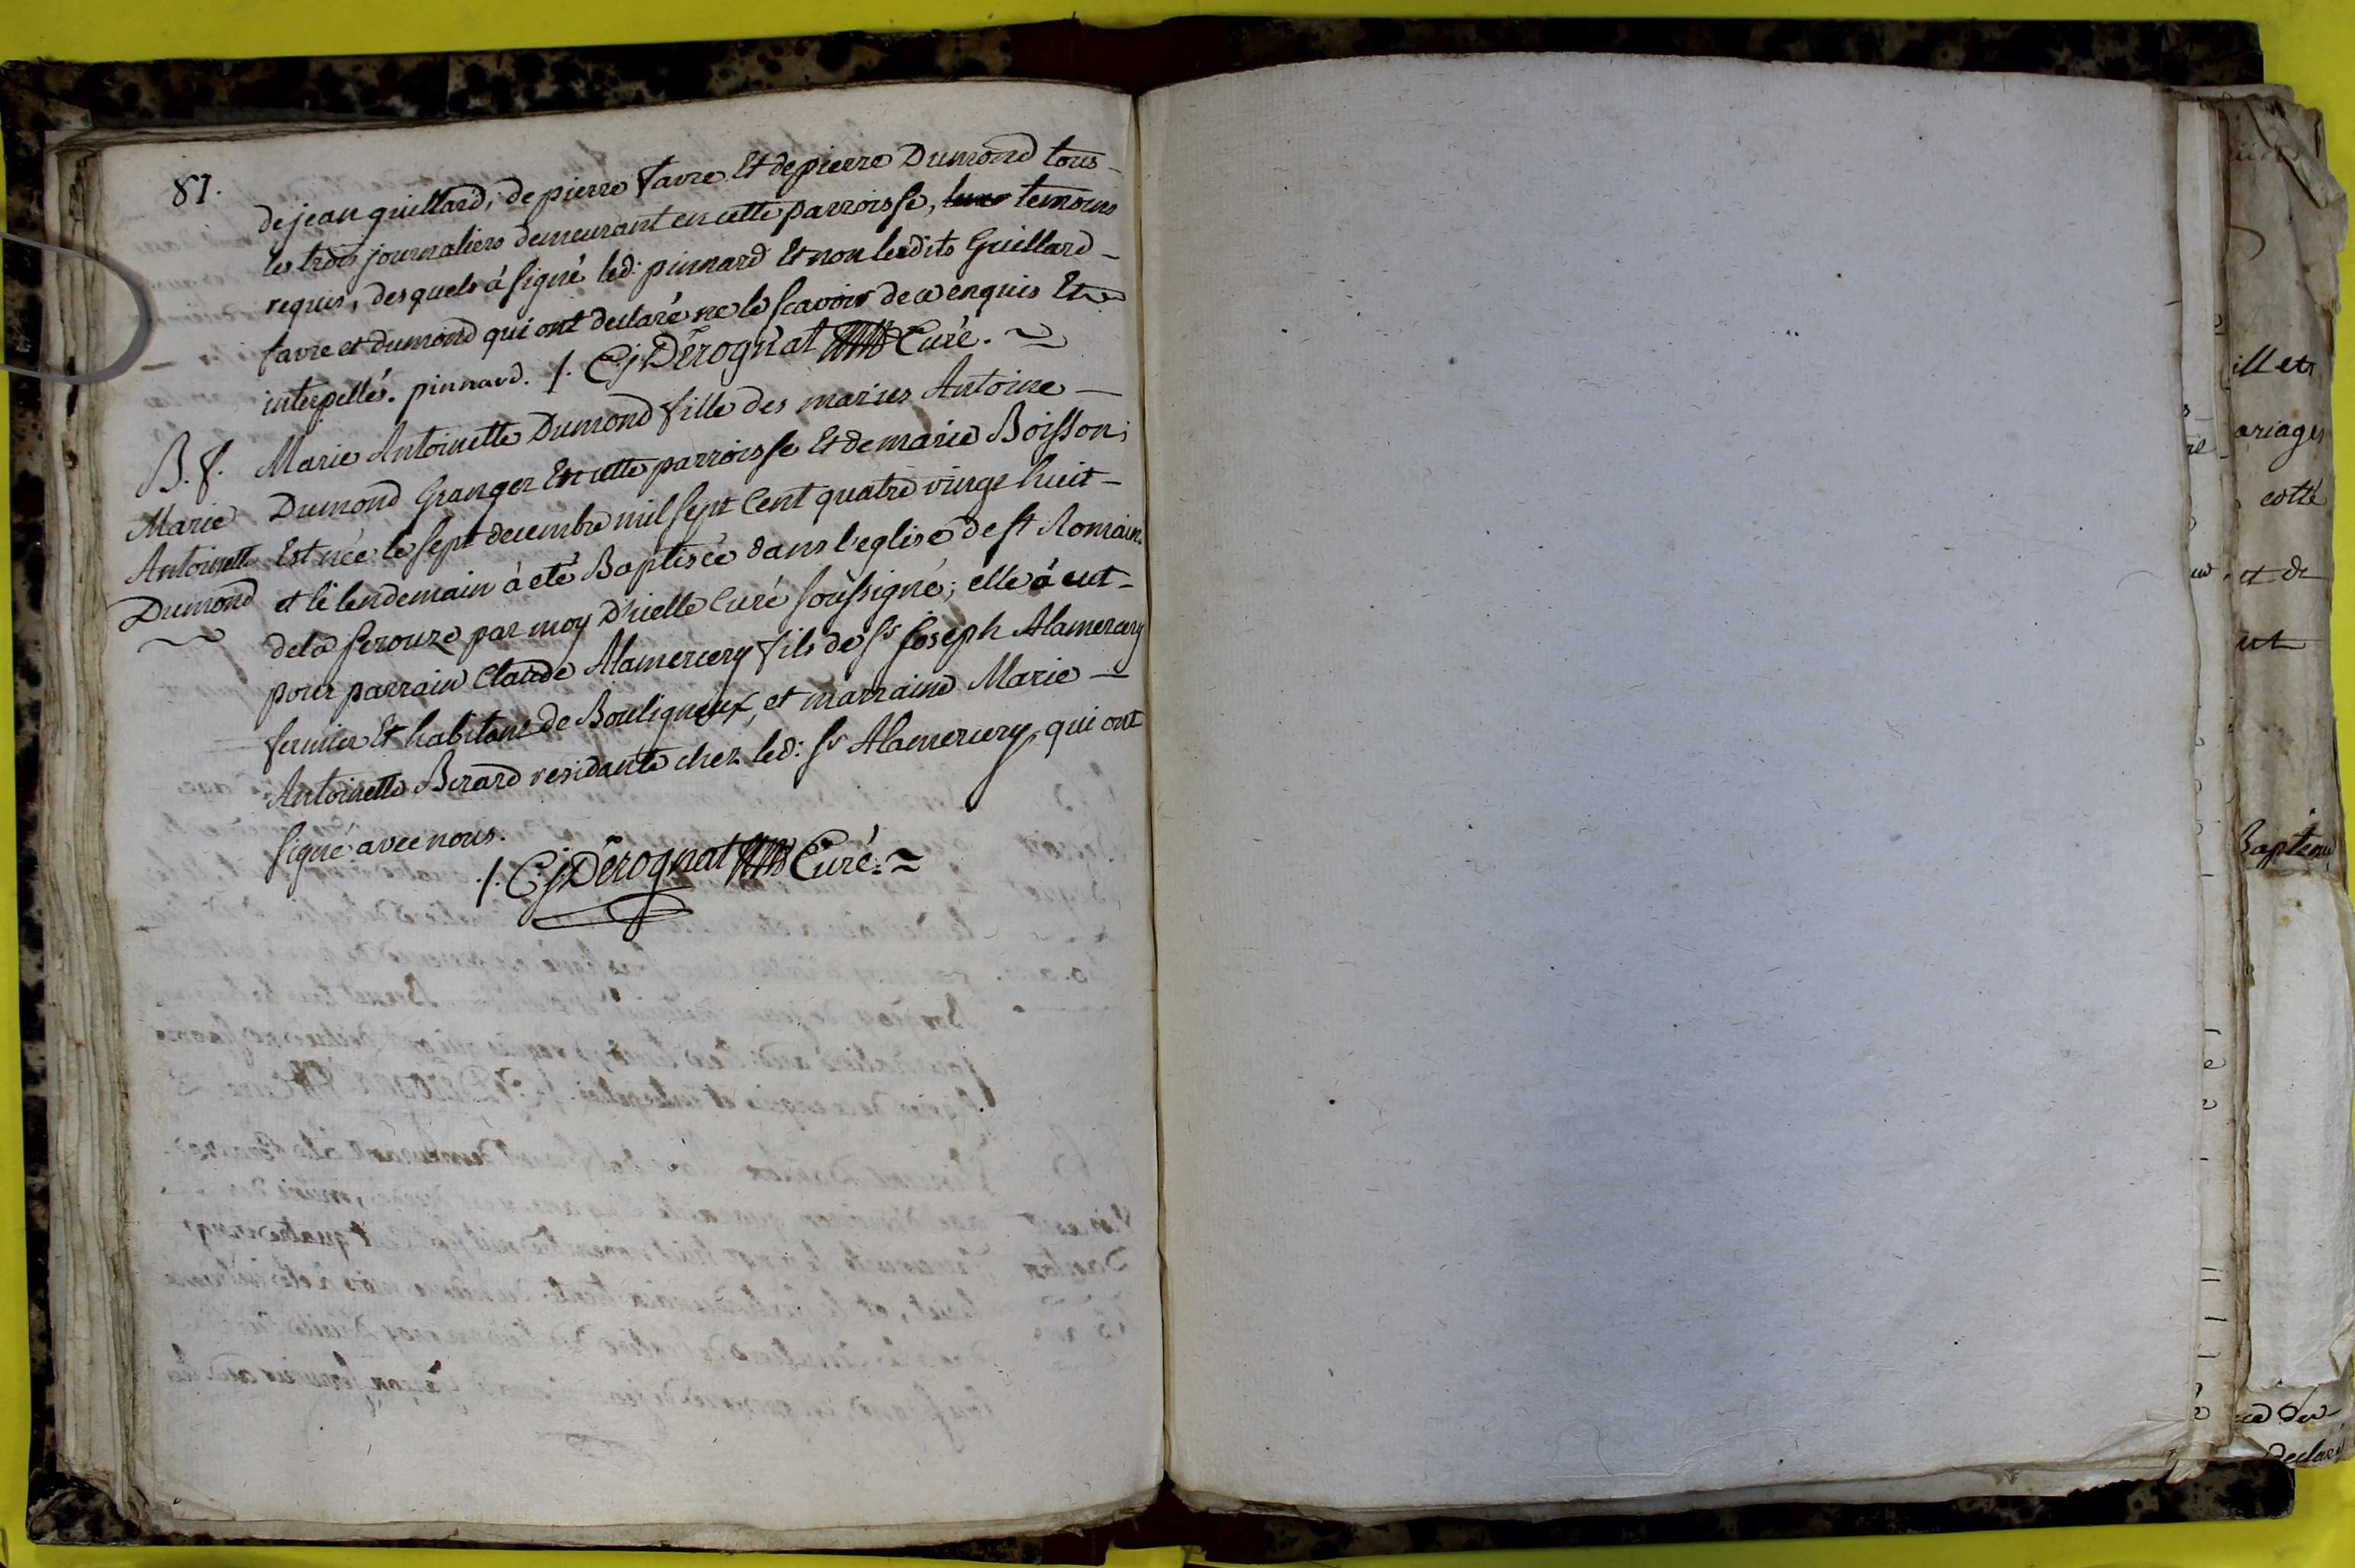 81.
de jean guillard, de pierre favre Et de pierre Dumond tous
les trois journaliers demeurant en cette parroisse, temoins
requis, desquels à signé led: pinnard Et non lesdits Guillard
favre et dumond qui ont declaré ne le scavoir de ce enquis Et
interpellés. pinnard. /. C j Dérognat Curé.
B. f.
Marie
Antoinette
Dumond
Marie Antoinette Dumond fille des maries Antoine
Dumond Granger En cette parroisse Et de marie Boisson;
Est née le sept decembre mil sept Cent quatre vingt huit
et le lendemain à eté Baptisée dans l'eglise de st Romain
de la perouze par moy d'icelle Curé soussigné; elle à eut
pour parrain Claude Alamercery fils de sr Joseph Alamercery
fermier Et habitant de Bouligneux, et marraine Marie
Antoinette Berard residante chez led: sr Alamercery, qui ont
signé avec nous.
/. C. j Dérognat Curé.
ill et
ariages
cotté
et de
Baptême
Declaré